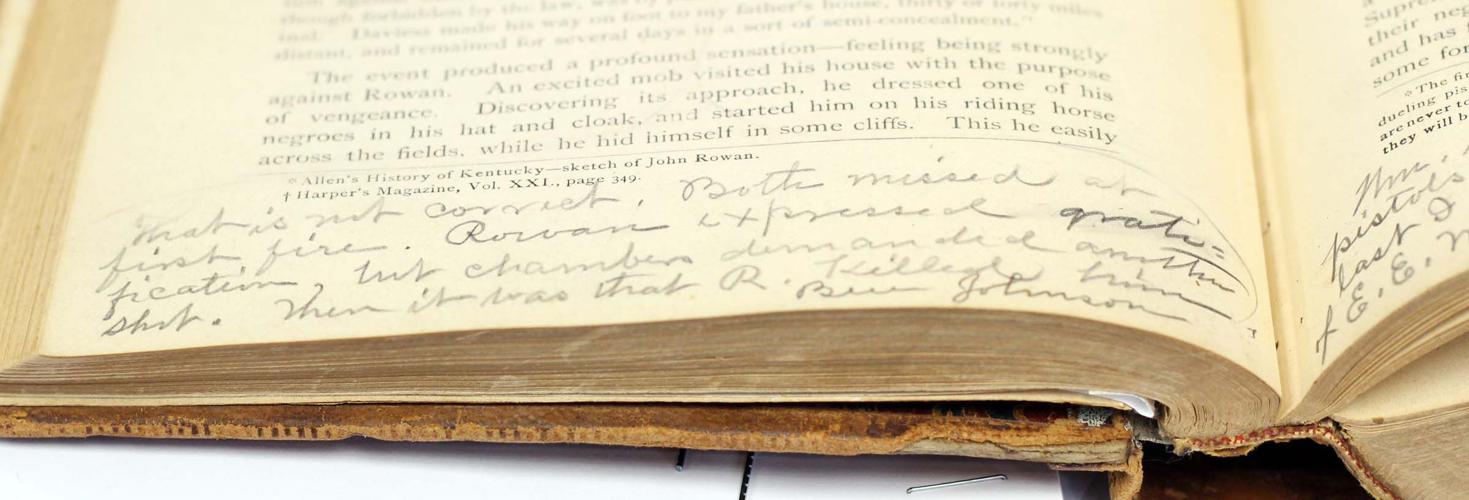 though forbidden by the law, was by
mal. Daviess made his way on foot to my father's house, thirty or forty miles
distant, and remained for several days in a sort of semi-concealment."
The event produced a profound sensation—feeling being strongly
against Rowan. An excited mob visited his house with the purpose
of vengeance. Discovering its approach, he dressed one of his
negroes in his hat and cloak, and started him on his riding horse
across the fields, while he hid himself in some cliffs. This he easily
*Allen's History of Kentucky—sketch of John Rowan.
† Harper's Magazine, Vol. XXI., page 349.
That is not correct. Both missed at
first fire. Rowan expressed grati=
fication, but chambers demanded another
shot. Then it was that R. Killed him
Ben Johnson
Supre
their neg
and has
some for
*The fir
dueling pis
are never to
they will b
Wm.
pistols
last I
of E. E. M